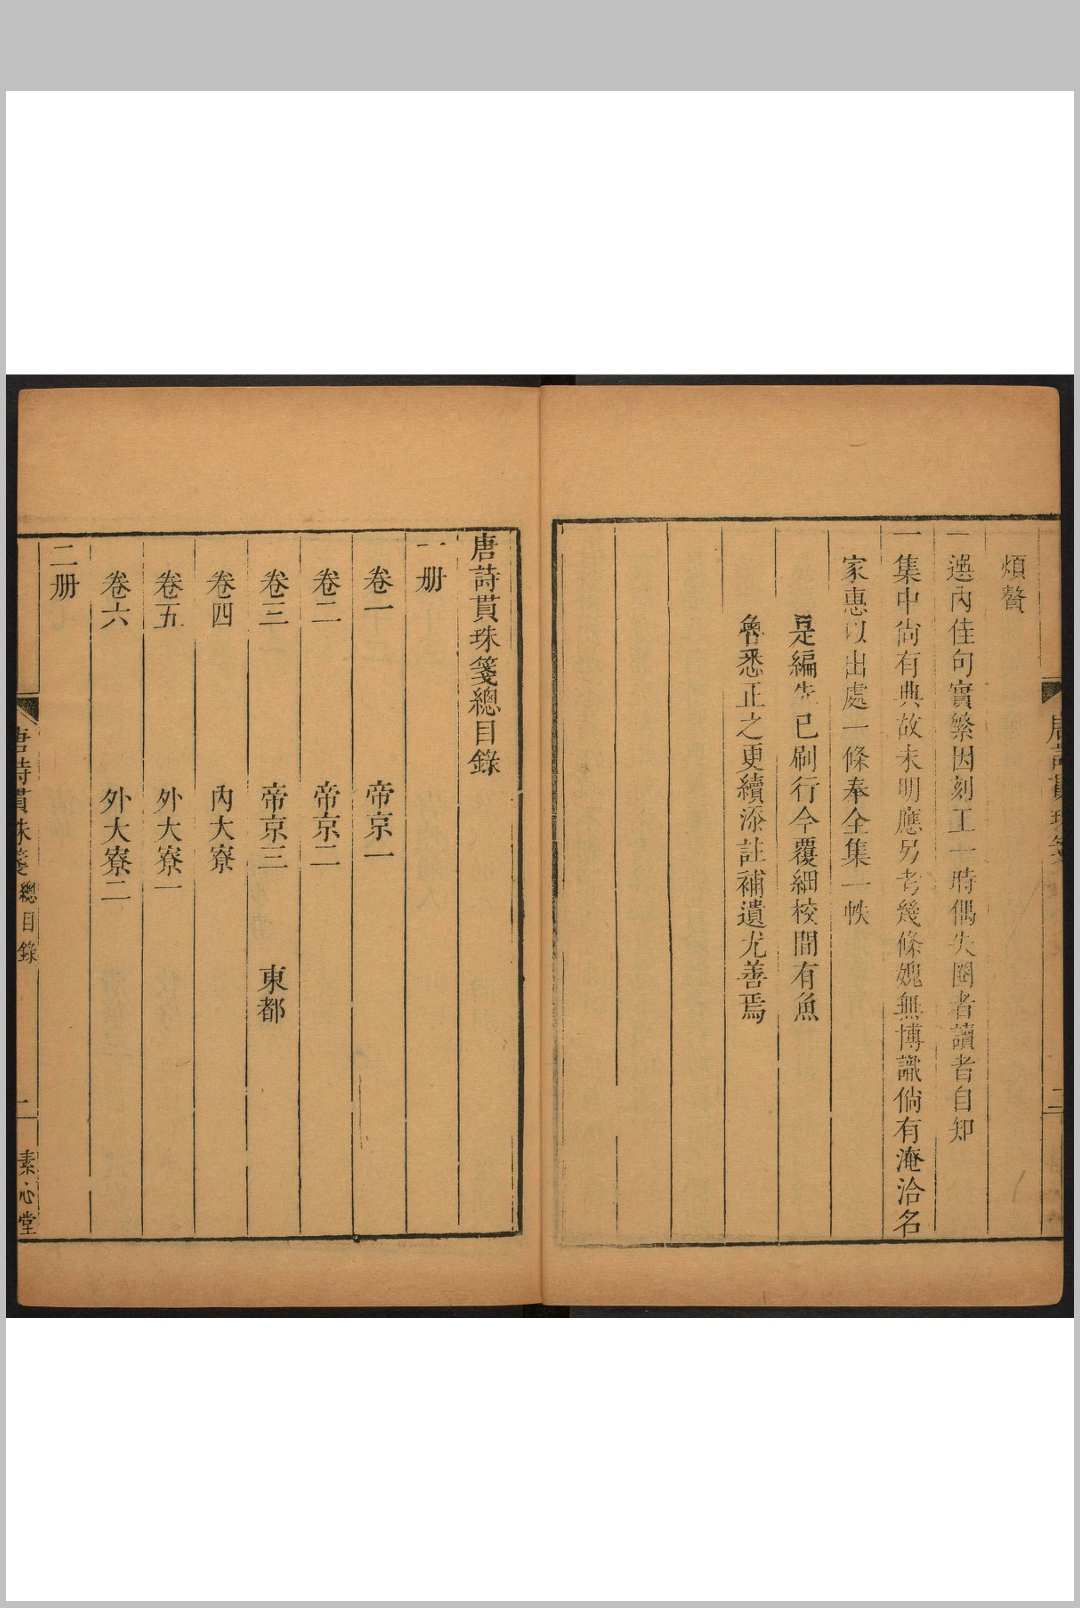 煩贅
一選內佳句實繁因刻工一時偶失圈者讀者自知
一集中尚有典故未明應另考幾條媿無博識倘有淹洽名
家惠以出處一條奉全集一帙
是編先已刷行今覆細校間有魚
魯悉正之更續添註補遺尤善焉
唐詩貫珠箋
二
唐詩貫珠箋總目錄
一册
卷一 帝京一
卷二 帝京二
卷三 帝京三 東都
卷四 內大寮
卷五 外大寮一
卷六 外大寮二
二册
唐詩貫珠箋 總目錄 二 素心堂